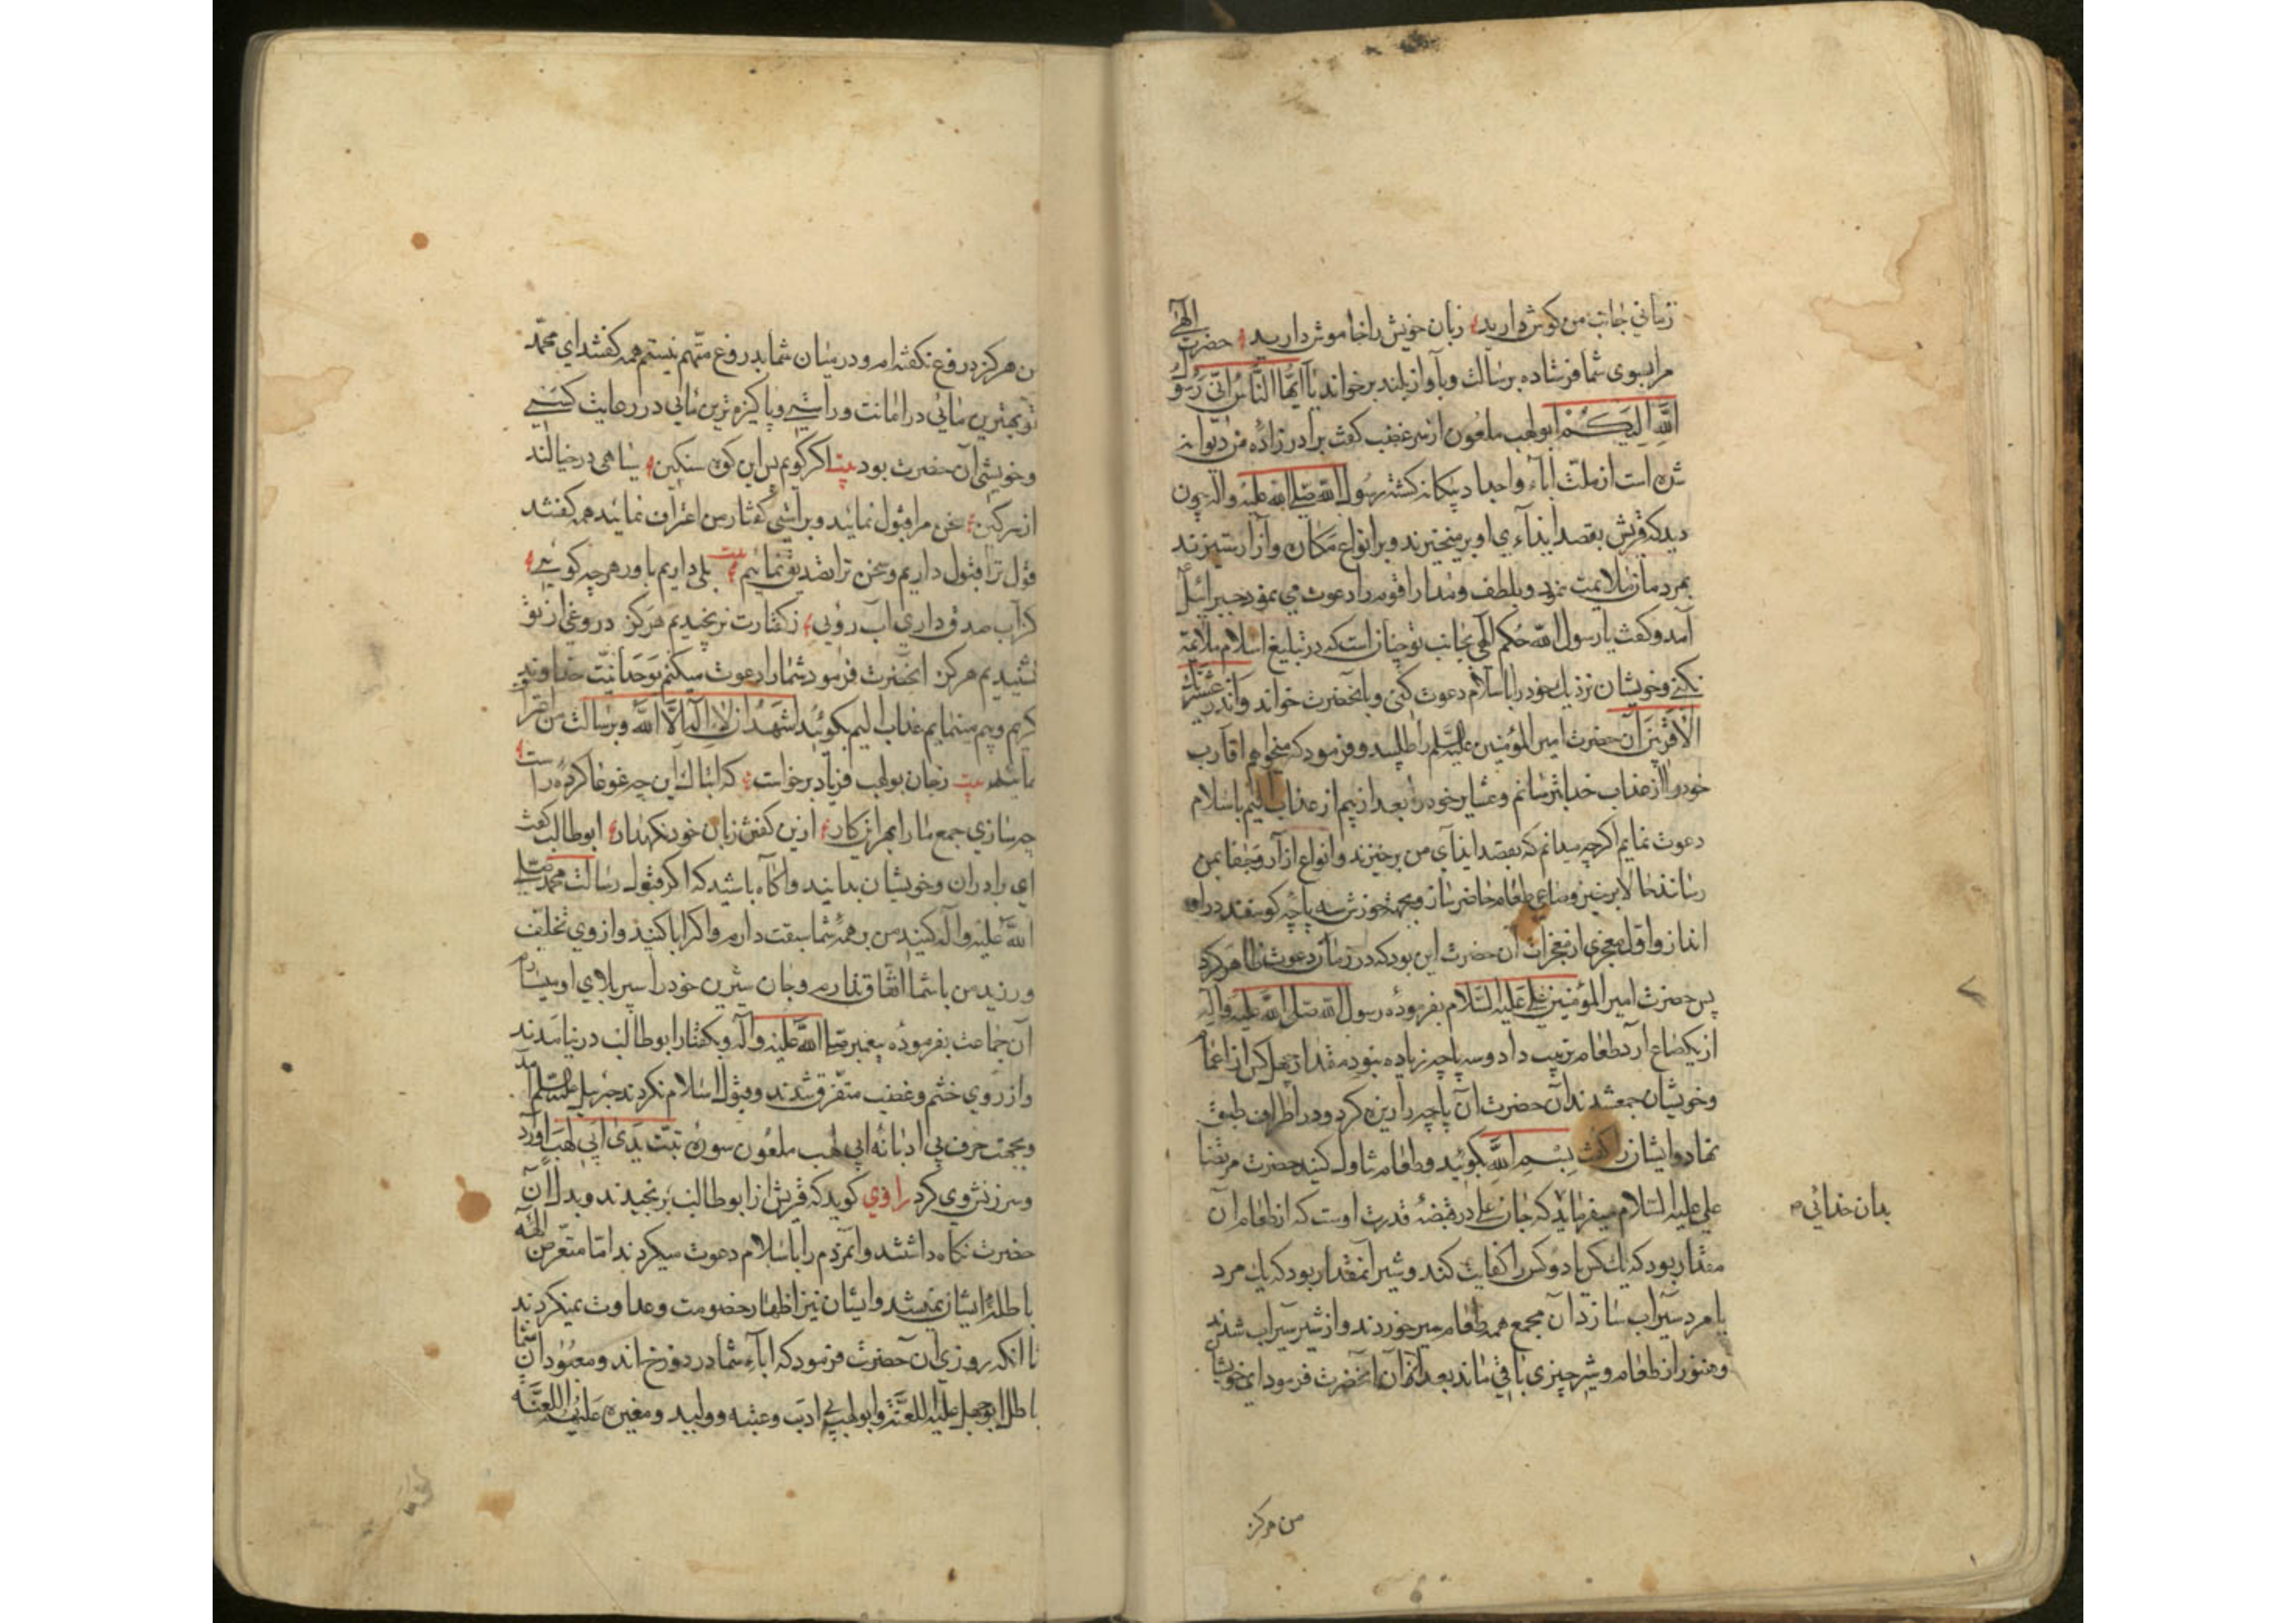 زمانی جانب من کوش دارید زبان خویش را خاموش دارید حضرت الهی
مرا بسوی شما فرستاده برسالت و بآواز بلند برخواند یا ایها الناس انی رسول
الله الیکم ابو لهب ملعون از سر غضب کفت برادرزاده من دیوانه
شده است از ملت اباء و اجداد بیکانه کشته رسول الله صلی الله علیه واله چون
دید که قریش بقصد ایذاء وی او برمیخیزند و بر انواع مکاره و آزار ستیزند
بمردمان ملایمت نمود و بلطف و مدارا قوم را دعوت می نمود جبرائیل
آمد و کفت یا رسول الله حکم الهی بجانب تو چنان است که در تبلیغ اسلام ملایمة
نکنی و خویشان نزدیک خود را باسلام دعوت کنی و بانحضرت خواند وانذر عشیرتک
الاقربین آن حضرت امیر المؤمنین علیه السلم را طلبید و فرمود که میخواهم اقارب
خود را از عذاب خدا بترسانم و عشایر خود را بعد از بیم از عذاب الیم باسلام
دعوت نمایم اکرچه میدانم که بقصد ایذآی من برخیزند و انواع ازار و جفا بمن
رسانند حالا برخیز و صاعی طعام حاضر ساز و بجهة خورش سه پاچه کوسفند در او
انداز و اول معجزی از معجزات آن حضرت این بود که در زمان دعوت ظاهر کرد
پس حضرت امیر المؤمنین علی علیه السلام بفرموده رسول الله صلی الله علیه واله
از یکصاع آرد طعام ترتیب داد و سه پاچه زیاده نبود مقدار چهل کس از اعمام
و خویشان جمع شدند آن حضرت آن پاچه را ریزه کرد و در اطراف طبق
نهاد و ایشانرا کفت بسم الله بکوئید و طعام تناول کنید حضرت مرتضا
علی علیه السلام میفرماید که جان علی در قبضهٔ قدرت اوست که از طعام آن
بدان خدائی
مقدار بود که یک کس یا دو کس را کفایت کند و شیر آنمقدار بود که یک مرد
یا مرد سیراب سازد آن مجمع همه طعام سیر خوردند و از شیر سیراب شدند
و هنوز از طعام و شیر چیزی باقی ماند بعد از آن آنحضرت فرمود ای خویشان
من هرکز
من هرکز دروغ نکفته ام و در میان شما بدروغ متهم نیستم همه کفتند ای محمد
تو بهترین مائی در امانت و راستی و پاکیزه ترین مائی در رعایت
و خویشی آن حضرت بود بیت اکر کویم پس این کوه سنکین سپاهی در خیالند
از سر کین سخن مرا قبول نمائید و براستی کفتار من اعتراف نمائید همه کفتند
قول ترا قبول داریم و سخن ترا تصدیق نمائیم بیت بلی داریم باور هرچه کوئی
کز آب صدق داری آب روئی ز کفتارت نرنجیدیم هرکز دروغی از تو
نشنیدیم هرکز آنحضرت فرمود شما را دعوت میکنم بوحدانیت خداوند
کریم و بیم مینمایم عذاب الیم بکوئید اشهد ان لا اله الا الله و برسالت من اقرار
نمائید بیت زجان بولهب فریاد برخاست که این چه غوغا کرده راست
چه سازی جمع ما را بهر این کار ازین کفتن زبان خود نکهدار ابو طالب کفت
ای برادران و خویشان بدانید و اکاه باشید که اکر قبول رسالت محمد صلی
الله علیه واله کنید من بر همه شما سبقت دارم و اکر ابا کنید و از وی تخلف
ورزید من با شما اتفاق ندارم و جان شیرین خود را سپر بلای او میسازم
آن جماعت بفرموده پیغمبر صلی الله علیه واله و بکفتار ابو طالب در نیامدند
و از روی خشم و غضب متفرق شدند و قبول اسلام نکردند جبرئیل علیه السلم آمد
و بجهت حرف بی ادبانه ابی لهب ملعون سوره تبت یدی ابی لهب آورد
و سرزنش وی کرد راوی کوید که قریش از ابو طالب برنجیدند و بدل آن
حضرت نکاه داشتند و آنمردم را باسلام دعوت میکردند اما متعرض الهه
باطلهٔ ایشان نمیشد و ایشان نیز اظهار خصومت و عداوت نمیکردند
تا انکه روزی آن حضرت فرمود که اباء شما در دوزخ اند و معبودان شما
باطل ابو جهل علیه اللعنة و ابو لهب بی ادب و عتبه و ولید و مغیره علیهم اللعنة